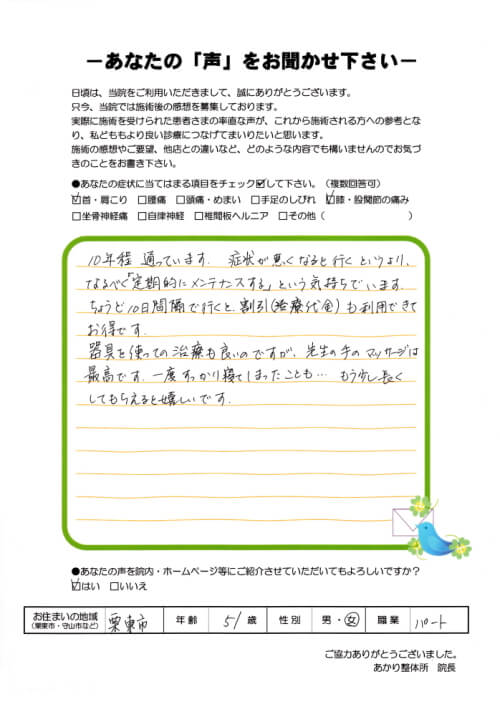 －あなたの「声」をお聞かせ下さい－
日頃は、当院をご利用いただきまして、誠にありがとうございます。
只今、当院では施術後の感想を募集しております。
実際に施術を受けられた患者さまの率直な声が、これから施術される方への参考とな
り、私どももより良い診療につなげてまいりたいと思います。
施術の感想やご要望、他店との違いなど、どのような内容でも構いませんのでお気づ
きのことをお書き下さい。
●あなたの症状に当てはまる項目をチェック☑して下さい。（複数回答可）
☑首・肩こり □腰痛 □頭痛・めまい □手足のしびれ ☑膝・股関節の痛み
□坐骨神経痛 □自律神経 □椎間板ヘルニア □その他（　　　　　　　）
10年程 通っています. 症状が悪くなると行くというより、
なるべく「定期的にメンテナンスする」という気持ちでいます.
ちょうど10日間隔で行くと、割引(治療代金)も利用できて
お得です.
器具を使っての治療も良いのですが、先生の手のマッサージは
最高です. 一度すっかり寝てしまったことも… もう少し長く
してもらえると嬉しいです.
●あなたの声を院内・ホームページ等にご紹介させていただいてもよろしいですか？
☑はい □いいえ
お住まいの地域 (栗東市・守山市など) 栗東市 年齢 51歳 性別 男・女 職業 パート
ご協力ありがとうございました。
あかり整体所 院長